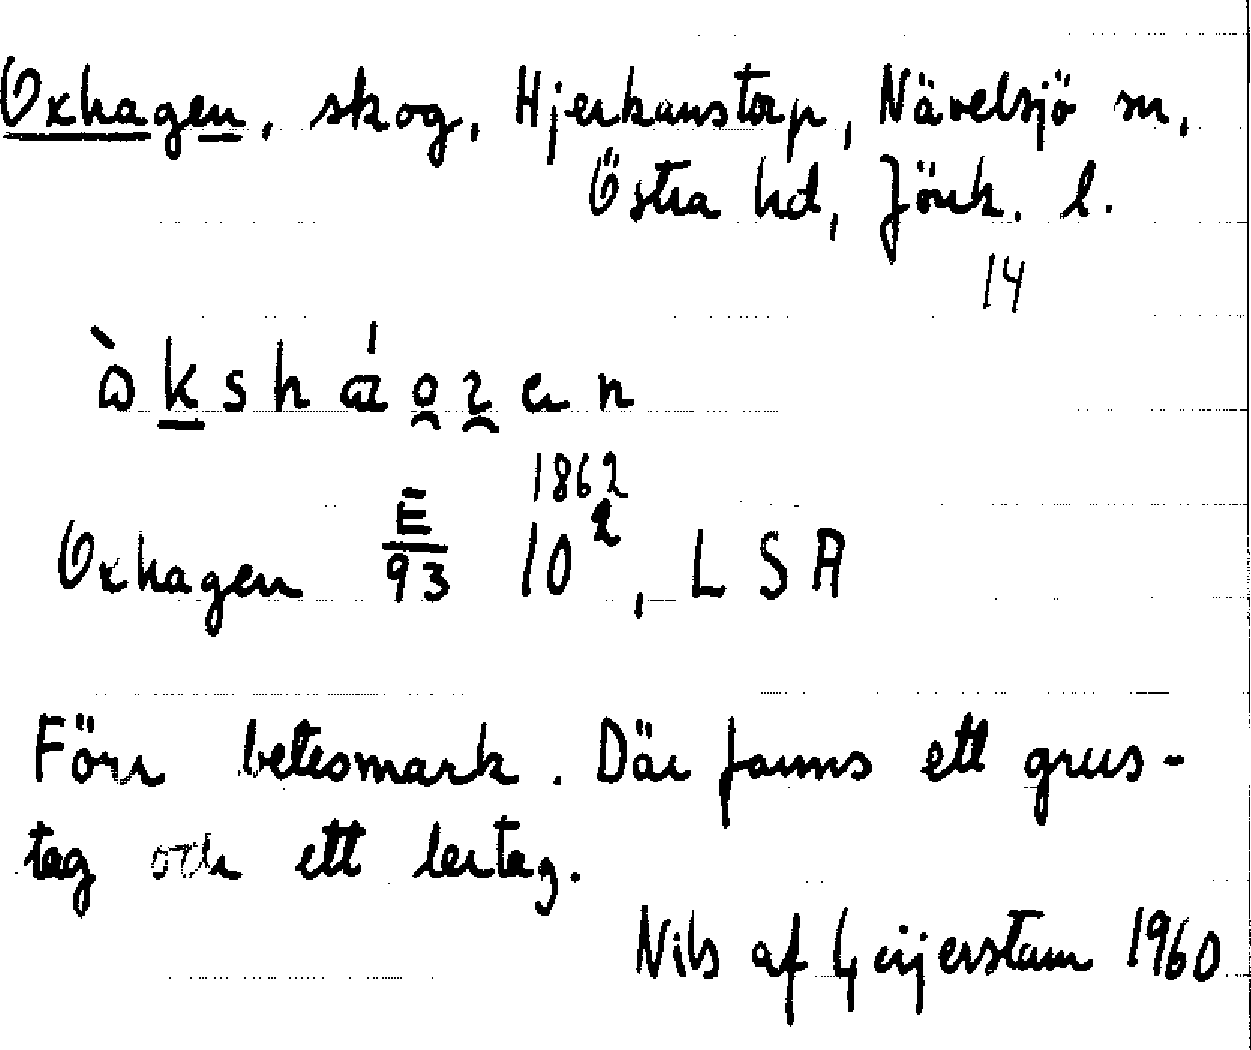 Oxhagen, skog, Hjerkanstorp, Nävelsjö sn,
Östra hd, Jönk. l.
14
Oxhagen E/93 10², LSA
1862
Förr betesmark. Där fanns ett grus-
tag och ett lertag.
Nils af Geijerstam 1960